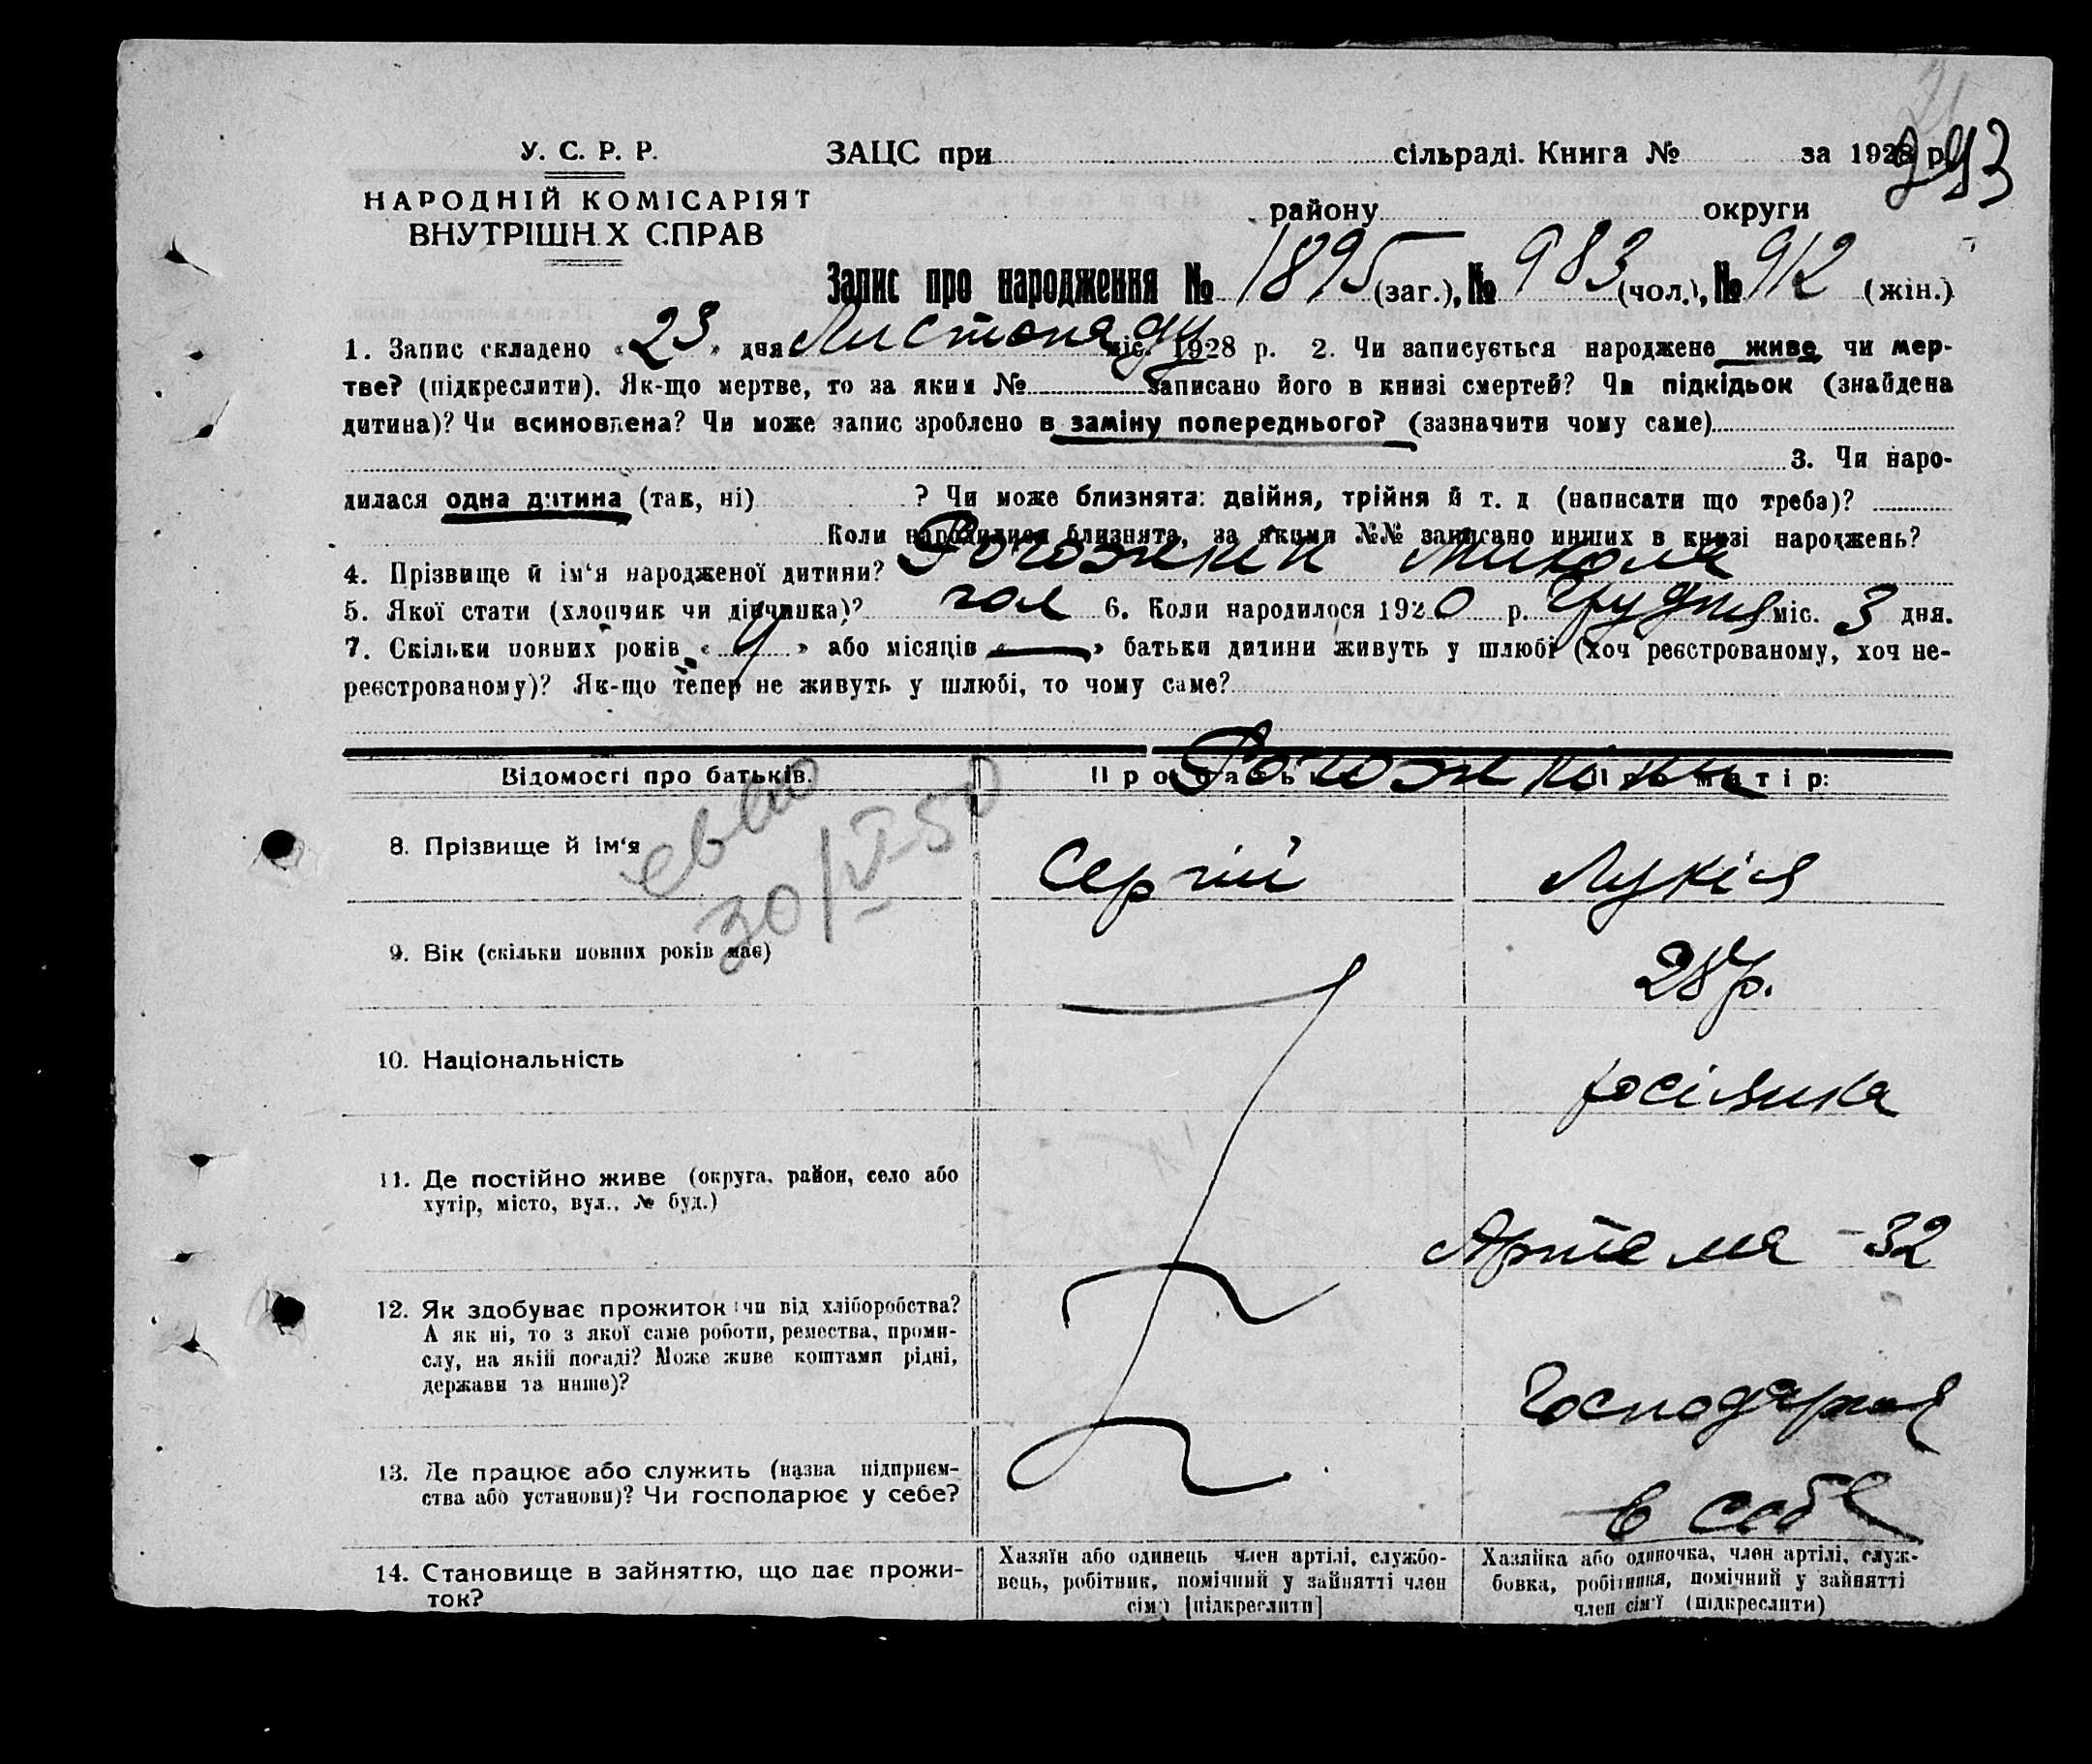 У. С. Р. Р.
НАРОДНІЙ КОМІСАРІЯТ
ВНУТРІШН Х СПРАВ
ЗАЦС при сільраді. Книга № за 1928 р.
району округи
Запис про народження № 1895 (заг.), № 983 (чол.), № 912 (жін.)
1. Запис складено «23» дня Листопаду міс. 1928 р. 2. Чи записується народжене живе чи мер-
тве? (підкреслити). Як-що мертве, то за яким № записано його в книзі смертей? Чи підкідьок (знайдена
дитина)? Чи всиновлена? Чи може запис зроблено в заміну попереднього? (зазначити чому саме)
3. Чи наро-
дилася одна дитина (так, ні) ? Чи може близнята: двійня, трійня й т. д (написати що треба)?
Коли народилися близнята, за якими №№ записано инших в книзі народжень?
4. Прізвище й ім‘я народженої дитини? Рогожкин Микола
5. Якої стати (хлопчик чи дівчинка)? чол 6. Коли народилося 1920 р. Грудня міс. 3 дня.
7. Скільки повних років « » або місяців « — » батьки дитини живуть у шлюбі (хоч реєстрованому, хоч не-
реєстрованому)? Як-що тепер не живуть у шлюбі, то чому саме?
Рогожкини
Відомості про батьків. Про батька Про матір:
30/VI-50
8. Прізвище й ім‘я Сергій Лукія
9. Вік (скільки повних років має) 28 р.
10. Національність росіянка
11. Де постійно живе (округа, район, село або
хутір, місто, вул., № буд.) Артема - 32
12. Як здобуває прожиток: чи від хліборобства?
А як ні, то з якої саме роботи, ремества, проми-
слу, на якій посаді? Може живе коштами рідні,
держави та инше)? Господарка
13. Де працює або служить (назва підприєм-
ства або установи)? Чи господарює у себе? в себе
14. Становище в зайняттю, що дає прожи-
ток?
Хазяїн або одинець член артілі, службо-
вець, робітник, помічний у зайнятті член
сім‘ї [підкреслити]
Хазяйка або одиночка, член артілі, служ-
бовка, робітниця, помічний у зайнятті
член сім‘ї (підкреслити)